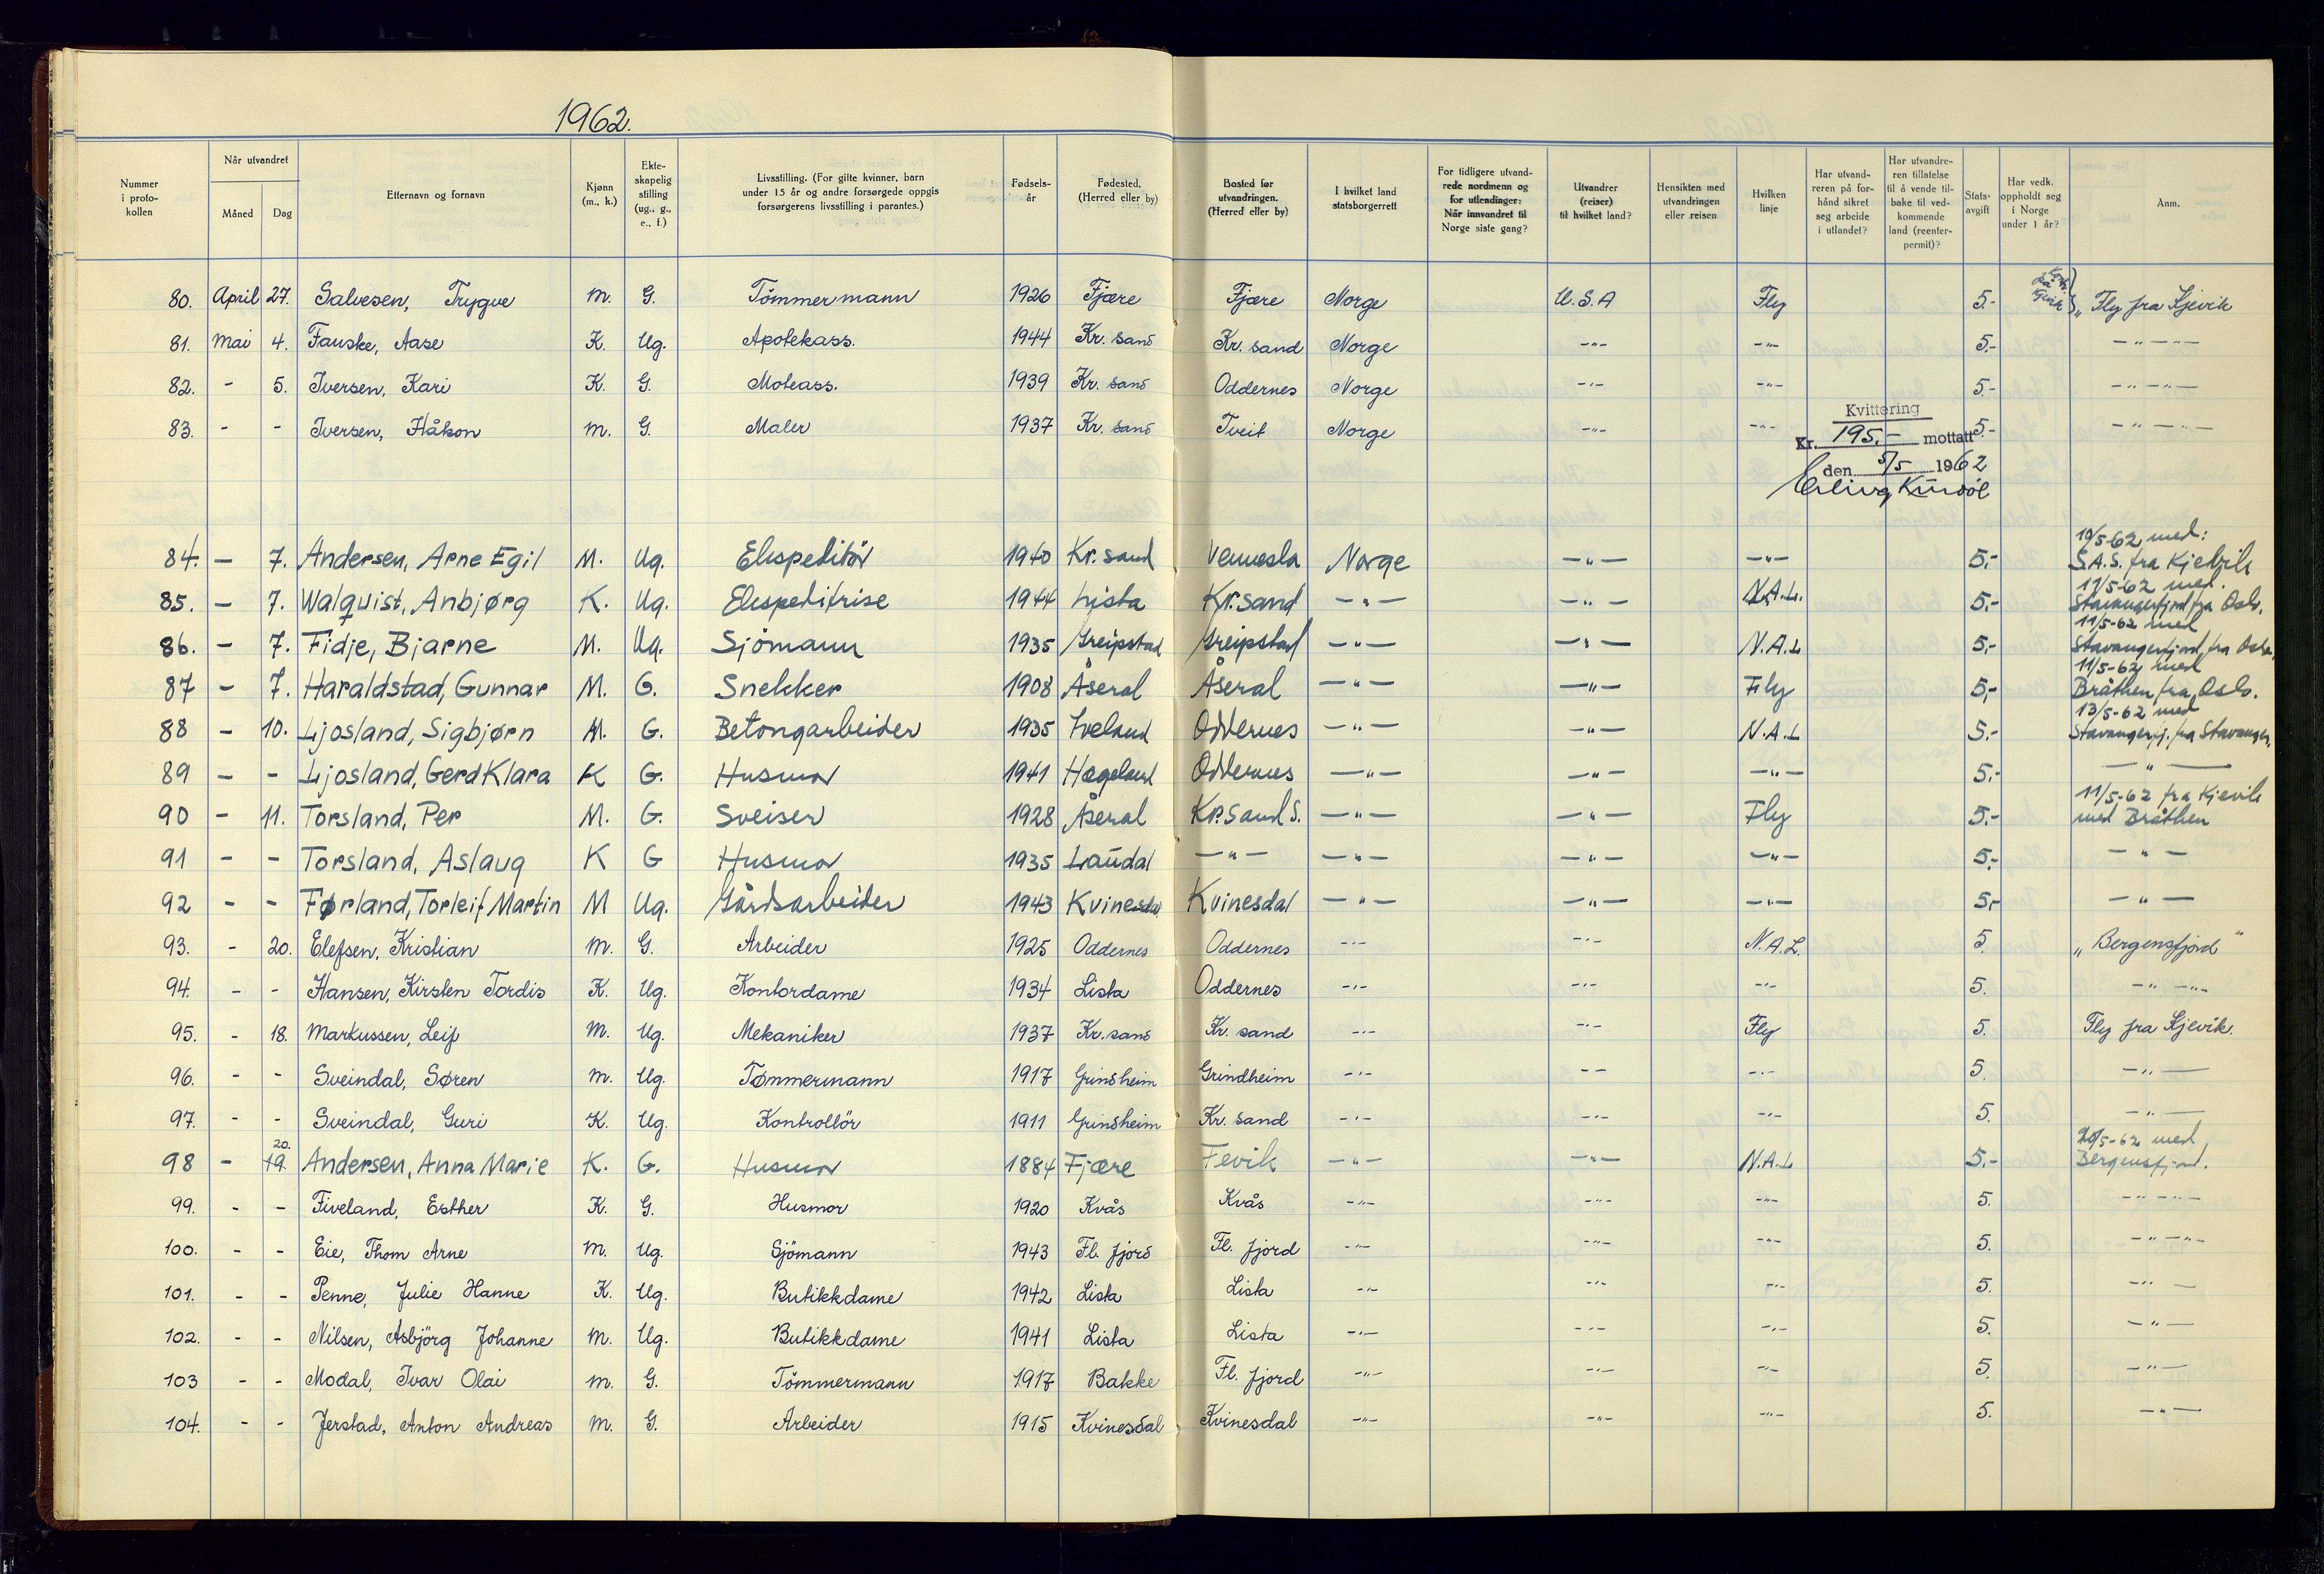 1962.
Nummer i protokollen | Når utvandret Måned Dag | Etternavn og fornavn | Kjønn (m., k.) | Ekteskapelig stilling (ug., g., e., f.) | Livsstilling. (For gifte kvinner, barn under 15 år og andre forsørgede oppgis forsørgerens livsstilling i parantes.) | Fødselsår | Fødested. (Herred eller by) | Bosted før utvandringen. (Herred eller by) | I hvilket land statsborgerrett | For tidligere utvandrede nordmenn og for utlendinger: Når innvandret til Norge siste gang? | Utvandrer (reiser) til hvilket land? | Hensikten med utvandringen eller reisen | Hvilken linje | Har utvandreren på forhånd sikret seg arbeide i utlandet? | Har utvandreren tillatelse til å vende tilbake til vedkommende land (reenterpermit)? | Statsavgift | Har vedk. oppholdt seg i Norge under 1 år? | Anm.
80. April 27. Salvesen, Trygve m. G. Tömmermann 1926 Fjære Fjære Norge U.S.A Fly 5.- „Fly fra Kjevik
81. Mai 4. Fauske, Aase K. Ug. Apotekass. 1944 Kr. sand Kr. sand Norge -"- -"- 5.- -"- -"-
82. - 5. Iversen, Kari K. G. Moteass. 1939 Kr. sand Oddernes Norge -"- -"- 5.- -"- -"-
83. - - Iversen, Håkon m. G. Maler 1937 Kr. sand Tveit Norge -"- -"- 5.- -"- -"-
Kvittering
Kr. 195.- mottatt
den 5/5 1962
Erling
84. - 7. Andersen, Arne Egil M. Ug. Ekspeditör 1940 Kr. sand Vennesla Norge -"- -"- 5,- 10/5-62 med: S.A.S. fra Kjevik
85. - 7. Walqvist, Anbjørg K. Ug. Ekspeditrise 1944 Lista Kr.sand -"- -"- N.A.L. 5,- 11/5-62 med. Stavangerfjord fra Oslo.
86. - 7. Fidje, Bjarne M. Ug. Sjömann 1935 Greipstad Greipstad -"- -"- N.A.L 5,- 11/5-62 med Stavangerfjord fra Oslo.
87 - 7. Haraldstad, Gunnar M. G. Snekker 1908 Åseral Åseral -"- -"- Fly 5,- 11/5-62 med Bråthen fra Oslo.
88 - 10. Ljosland, Sigbjørn M. G. Betongarbeider 1935 Iveland Oddernes -"- -"- N.A.L 5.- 13/5-62 med Stavangerfj. fra Stavanger.
89 - - Ljosland, Gerd Klara K G. Husmor 1941 Hægeland Oddernes -"- -"- -"- 5.- -"-
90 - 11. Torsland, Per M. G. Sveiser 1928 Åseral Kr.sand S. -"- -"- Fly 5.- 11/5-62 fra Kjevik med Bråthen
91 - - Torsland, Aslaug K G Husmor 1935 Laudal -"- -"- -"- -"- 5.- -"-
92 - - Førland, Torleif Martin M Ug. Gårdsarbeider 1943 Kvinesdal Kvinesdal -"- -"- -"- 5,- -"-
93. - 20. Elefsen, Kristian m. G. Arbeider 1925 Oddernes Oddernes -"- -"- N.A.L. 5. „Bergensfjord"
94. - - Hansen, Kirsten Tordis K. Ug. Kontordame 1934 Lista Oddernes -"- -"- -"- 5. -"- -"-
95. - 18. Markussen, Leif m. Ug. Mekaniker 1937 Kr. sand Kr. sand -"- -"- Fly 5. Fly fra Kjevik.
96. - - Sveindal, Søren m. Ug. Tømmermann 1917 Grindheim Grindheim -"- -- -"- 5. -"-
97. - - Sveindal, Guri K. Ug. Kontrollör 1911 Grindheim Kr. sand -"- -"- -"- 5. -"-
98 - 19. 20. Andersen, Anna Marie K. G. Husmor 1884 Fjære Fevik -"- -"- N.A.L 5.- 20/5-62 med Bergensfjord.
99. - - Fiveland, Esther K. G. Husmor 1920 Kvås Kvås -"- -"- -"- 5. -"- -"-
100. - - Eie, Thom Arne m. Ug. Sjömann 1943 Fl. fjord Fl. fjord -"- -"- -"- 5. -"- -"-
101. - - Penne, Julie Hanne K. Ug. Butikkdame 1942 Lista Lista -"- -"- -"- 5. -"-
102. - - Nilsen, Asbjörg Johanne m. Ug. Butikkdame 1941 Lista Lista -"- -"- -"- 5. -"-
103 - - Modal, Ivar Olai m. G. Tömmermann 1917 Bakke Fl. fjord -"- -"- -"- 5. -"-
104. - - Jerstad, Anton Andreas m. G. Arbeider 1915 Kvinesdal Kvinesdal -"- -"- -"- 5. -"-